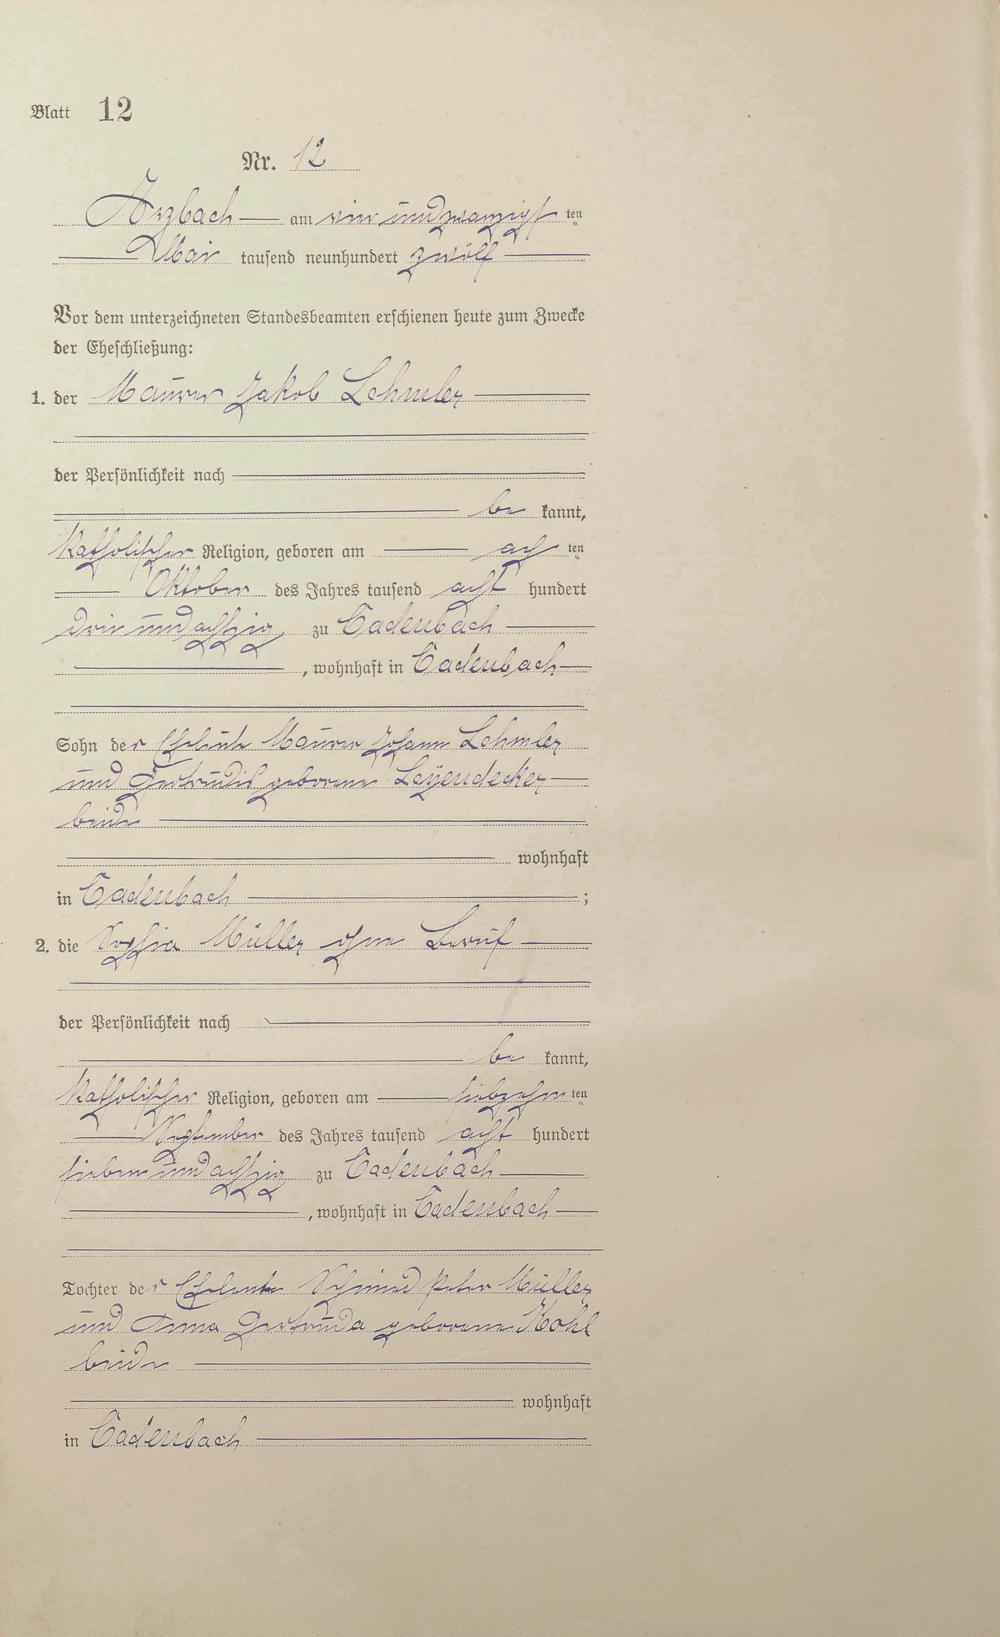 Blatt 12
Nr. 12
Arzbach am vier und zwanzigsten
Mai tausend neunhundert zwölf
Vor dem unterzeichneten Standesbeamten erschienen heute zum Zwecke
der Eheschließung:
1. der Maurer Jakob Lehmler
der Persönlichkeit nach
be kannt,
katholischer Religion, geboren am achten
Oktober des Jahres tausend acht hundert
drei und achtzig zu Cadenbach
, wohnhaft in Cadenbach
Sohn der Eheleute Maurer Johann Lehmler
und Gertrudis geborene Leyendecker
beide
wohnhaft
in Cadenbach ;
2. die Sophia Müller ohne Beruf
der Persönlichkeit nach
be kannt,
katholischer Religion, geboren am siebzehnten
September des Jahres tausend acht hundert
sieben und achtzig zu Cadenbach
, wohnhaft in Cadenbach
Tochter der Eheleute Schmied Peter Müller
und Anna Gertruda geborene Kohl
beide
wohnhaft
in Cadenbach